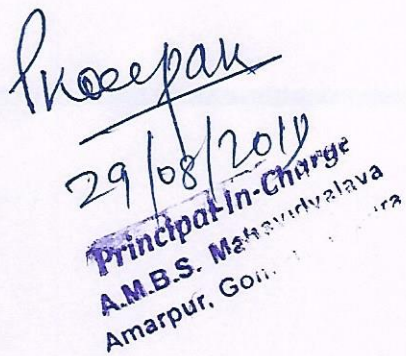 29/08/2019
Principal-in-Charge
A.M.B.S. Mahavidyalaya
Amarpur,